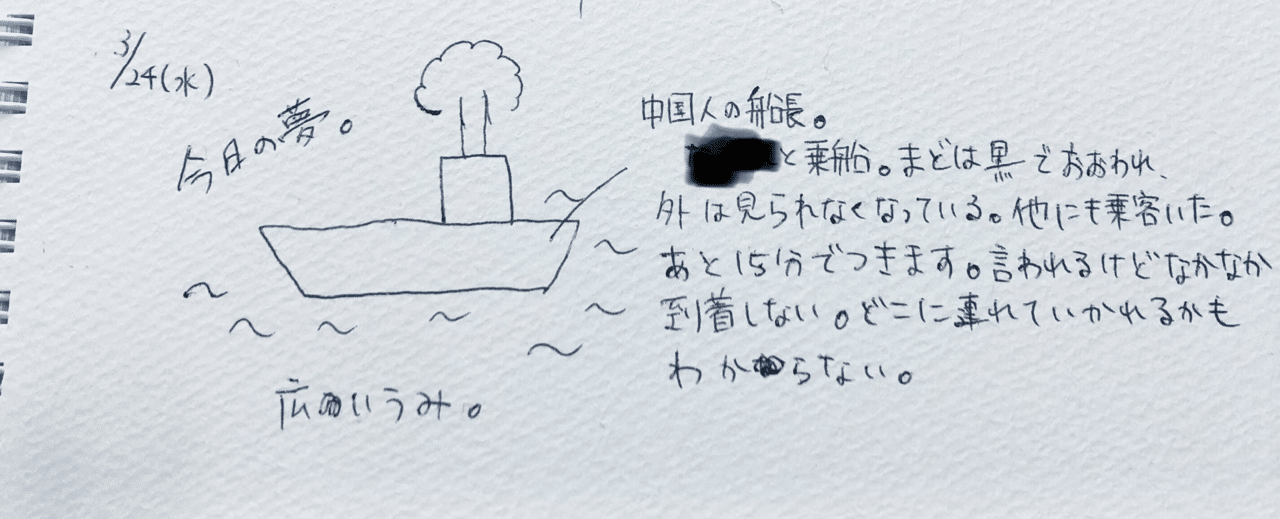 3/24(水)
今日の夢。
中国人の船長。
と乗船。まどは黒でおおわれ、
外は見られなくなっている。他にも乗客いた。
あと15分でつきます。言われるけどなかなか
到着しない。どこに連れていかれるかも
わからない。
広いうみ。